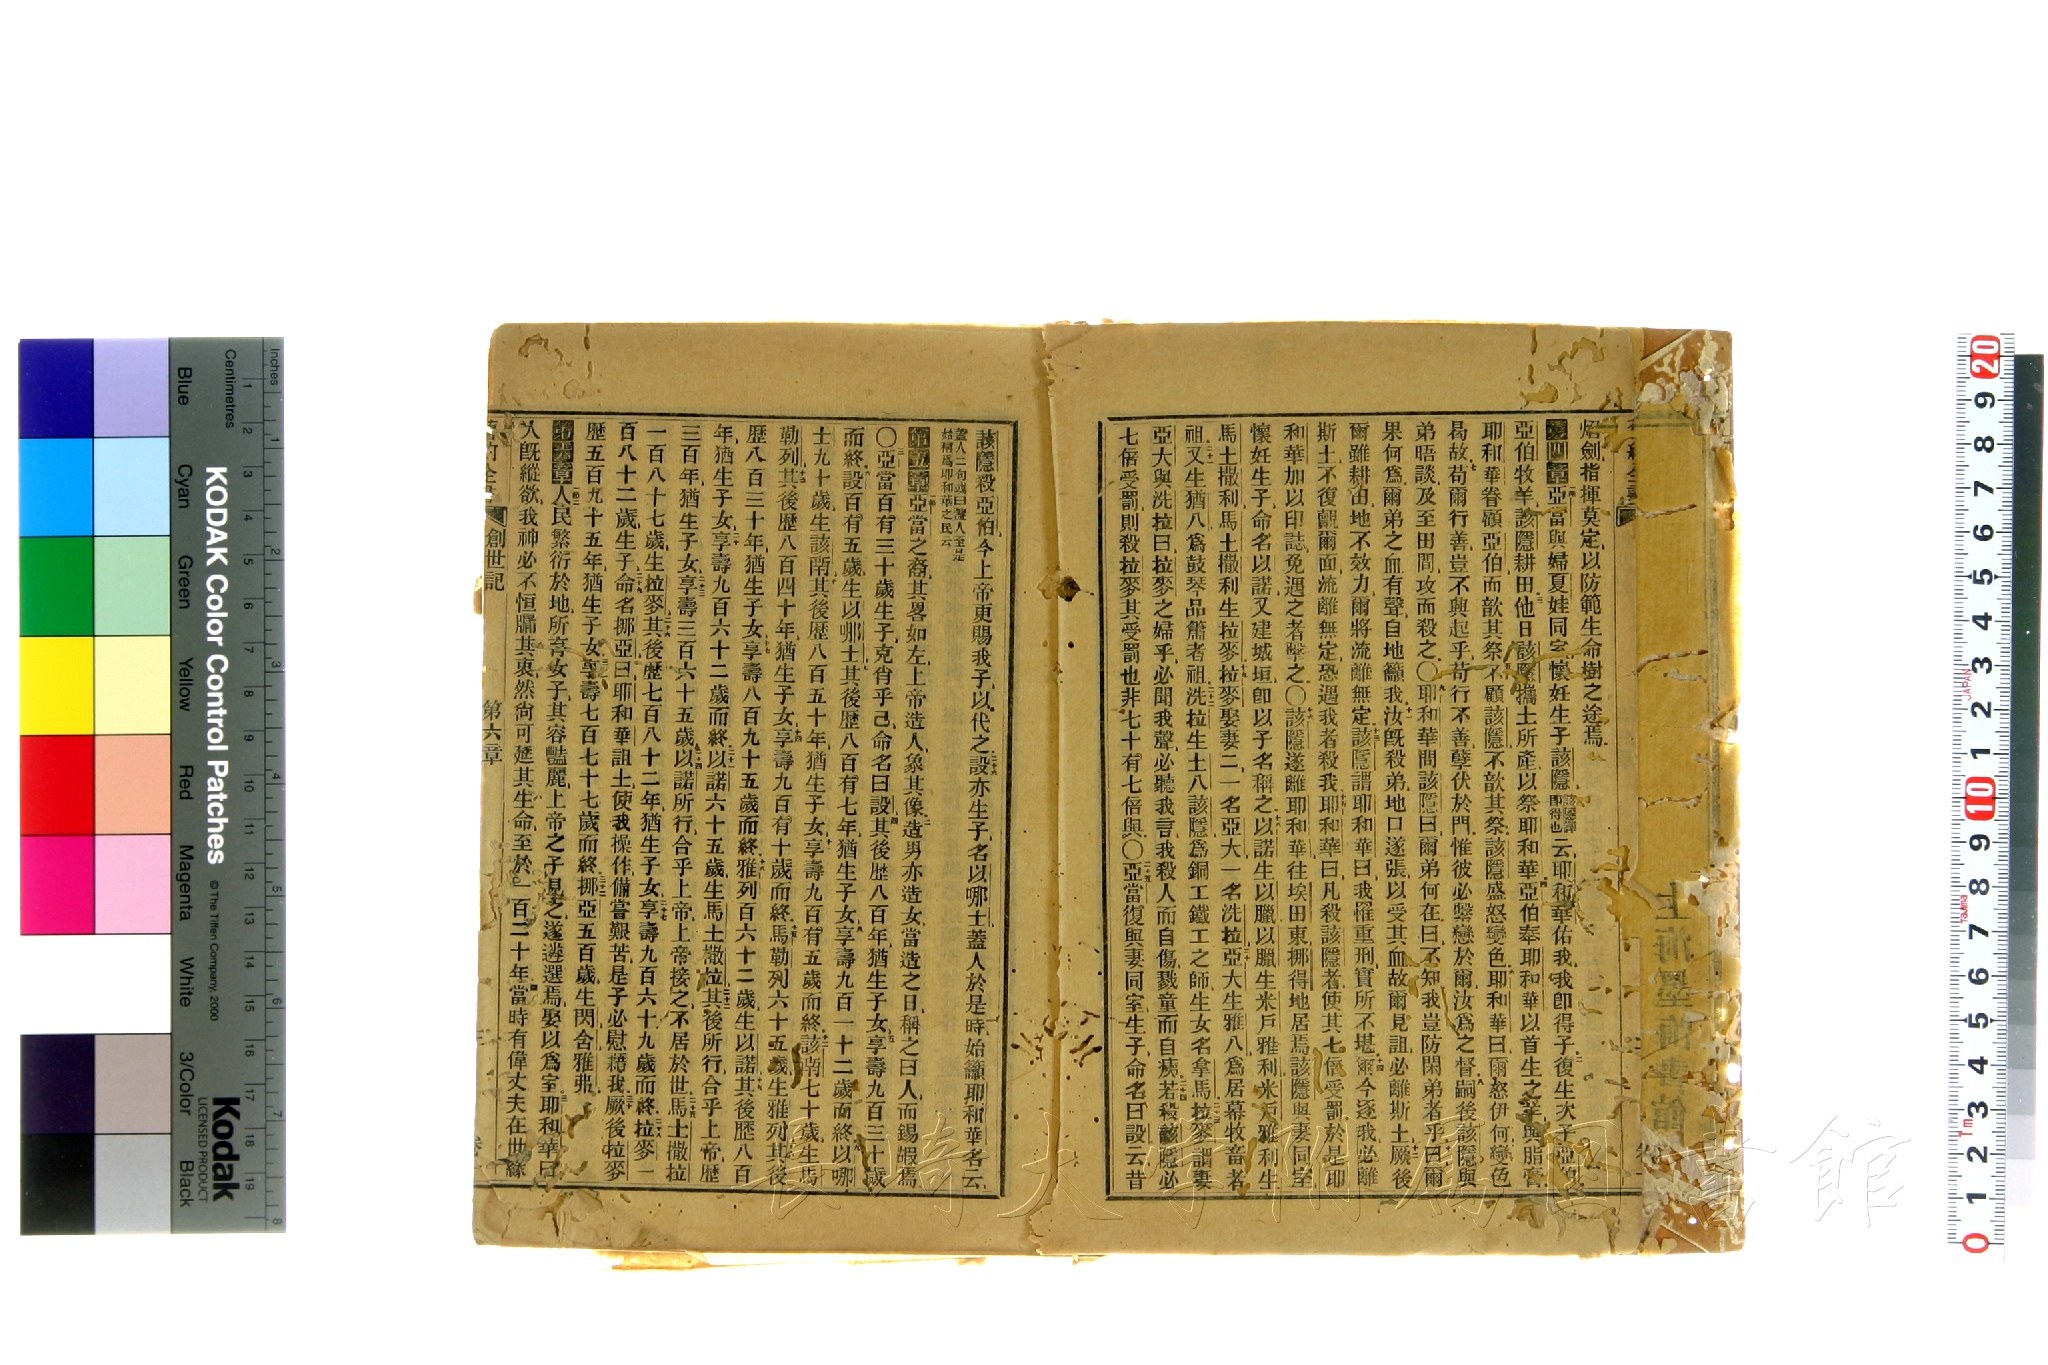 焰劍指揮莫定以防範生命樹之途焉
第四章亞當與婦夏娃同室懷妊生子該隱云耶和華佑我我卽得子後生次子亞伯
亞伯牧羊該隱耕田他日該隱攜土所產以祭耶和華亞伯奉耶和華以首生之羊與脂膏
耶和華眷顧亞伯而歆其祭不顧該隱不歆其祭該隱盛怒變色耶和華曰爾怒伊何變色
曷故苟爾行善豈不興起乎苟行不善孽伏於門惟彼必繫戀於爾汝爲之督嗣後該隱與
弟晤談及至田間攻而殺之〇耶和華問該隱曰爾弟何在曰不知我豈防閑弟者乎曰爾
果何爲爾弟之血有聲自地籲我汝旣殺弟地口遂張以受其血故爾見詛必離斯土厥後
爾雖耕田地不效力爾將流離無定該隱謂耶和華曰我罹重刑實所不堪爾今逐我必離
斯土不復覩爾面流離無定恐遇我者殺我耶和華曰凡殺該隱者使其七倍受罰於是耶
和華加以印誌免遇之者擊之〇該隱遂離耶和華往埃田東挪得地居焉該隱與妻同室
懷妊生子命名以諾又建城垣卽以子名稱之以諾生以臘以臘生米戶雅利米戶雅利生
馬土撒利馬土撒利生拉麥拉麥娶妻二一名亞大一名洗拉亞大生雅八爲居幕牧畜者
祖又生猶八爲鼓琴品簫者祖洗拉生土八該隱爲銅工鐵工之師生女名拿馬拉麥謂妻
亞大與洗拉曰拉麥之婦乎必聞我聲必聽我言我殺人而自傷戮童而自痍若殺該隱必
七倍受罰則殺拉麥其受罰也非七十有七倍與〇亞當復與妻同室生子命名曰設云昔
該隱殺亞伯今上帝更賜我子以代之設亦生子名以哪士蓋人於是時始籲耶和華名云
蓋人二句或曰蓋人至是
始稱爲耶和華之民云
第五章亞當之裔其畧如左上帝造人象其像造男亦造女當造之日稱之曰人而錫嘏焉
〇亞當百有三十歲生子克肖乎己命名曰設其後歷八百年猶生子女享壽九百三十歲
而終設百有五歲生以哪士其後歷八百有七年猶生子女享壽九百一十二歲而終以哪
士九十歲生該南其後歷八百五十年猶生子女享壽九百有五歲而終該南七十歲生馬
勒列其後歷八百四十年猶生子女享壽九百有十歲而終馬勒列六十五歲生雅列其後
歷八百三十年猶生子女享壽八百九十五歲而終雅列百六十二歲生以諾其後歷八百
年猶生子女享壽九百六十二歲而終以諾六十五歲生馬土撒拉其後所行合乎上帝歷
三百年猶生子女享壽三百六十五歲以諾所行合乎上帝上帝接之不居於世馬土撒拉
一百八十七歲生拉麥其後歷七百八十二年猶生子女享壽九百六十九歲而終拉麥一
百八十二歲生子命名挪亞曰耶和華詛土使我操作備嘗艱苦是子必慰藉我厥後拉麥
歷五百九十五年猶生子女享壽七百七十七歲而終挪亞五百歲生閃含雅弗
第六章人民繁衍於地所育女子其容豔麗上帝之子見之遂遴選焉娶以爲室耶和華曰
人旣縱欲我神必不恒牖其衷然尙可延其生命至於一百二十年當時有偉丈夫在世緣
創世記
第六章
上海墨海書館
長崎大学附属図書館
KODAK Color Control Patches
© The Tiffen Company, 2000
Kodak
LICENSED PRODUCT
Inches
Centimetres
Blue
Cyan
Green
Yellow
Red
Magenta
White
3/Color
Black
JAPAN